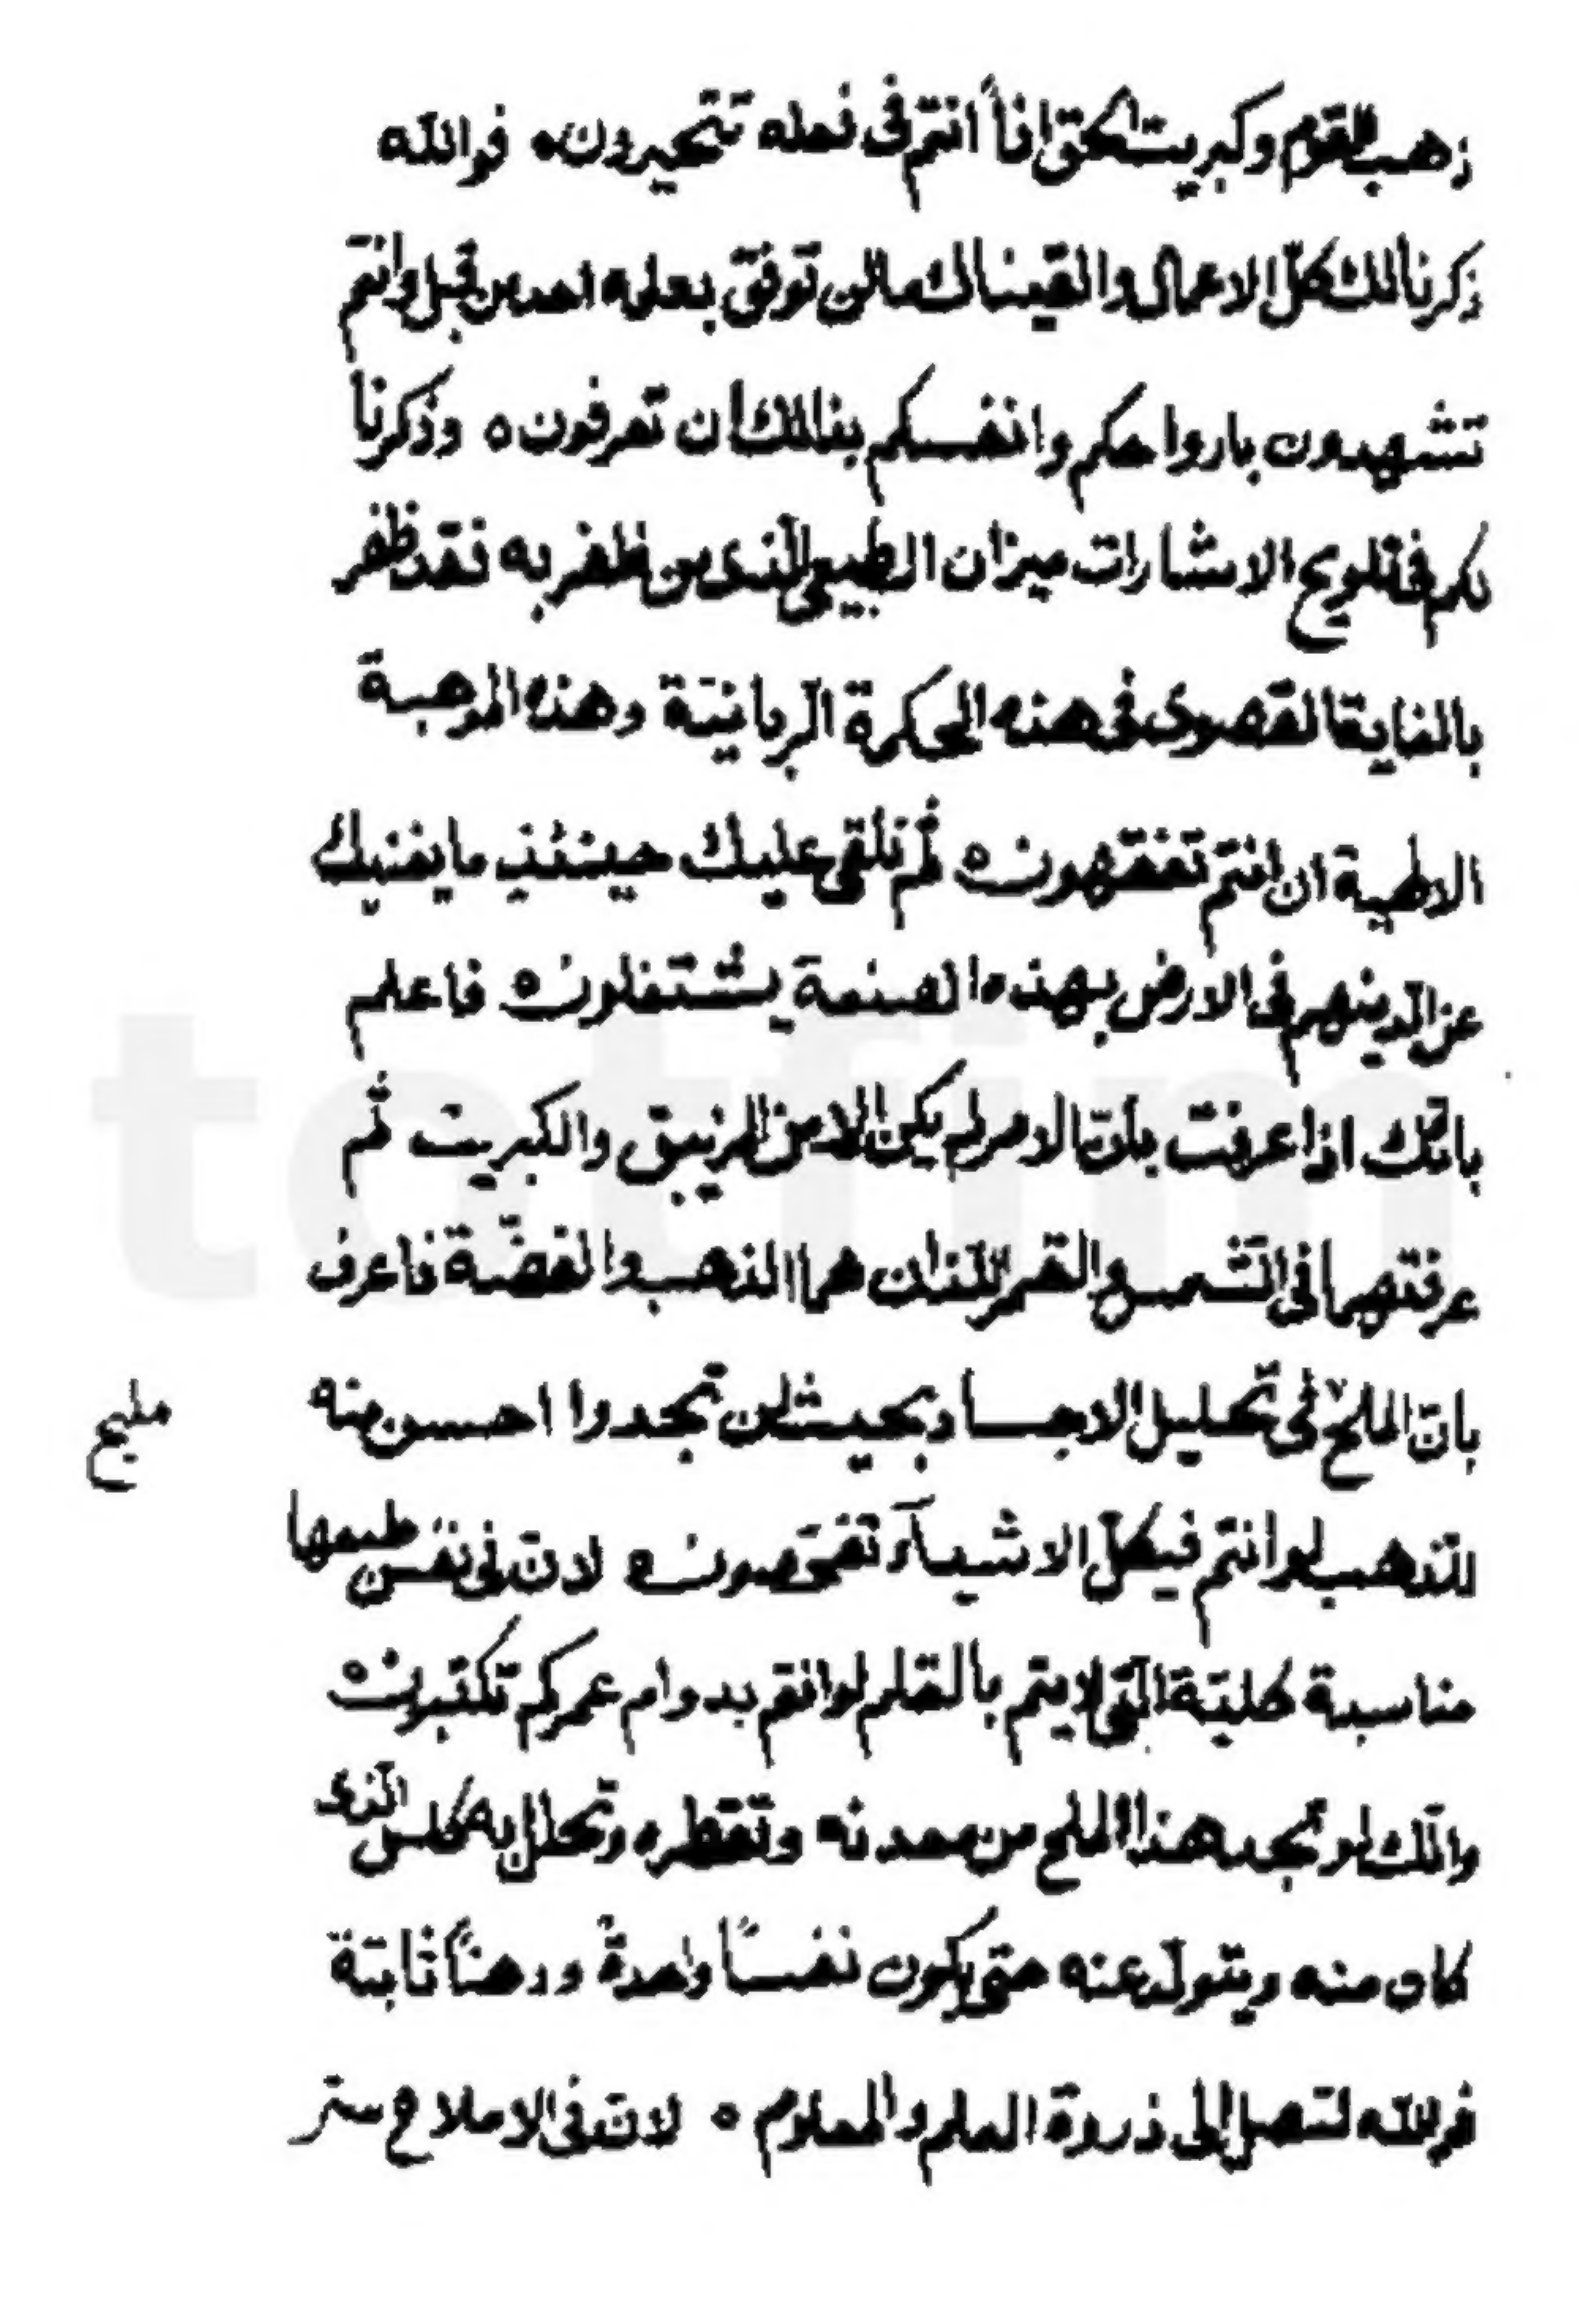 ذهب القوم وكبريت الحق اناً انتم فى فعله تتحيرون. فوالله
ذكرنا لك كل الاعمال والقيناك ما لن توفق بعلمه احد من قبل وانتم
تشهدون بارواحكم وانفسكم بذلك ان تعرفون ه وذكرنا
لكم فى تلويح الاشارات ميزان الطبيعى الذى من ظفر به فقد ظفر
بالغاية القصوى فى هذه الحكمة الربانيّة وهذه الموهبة
الالهية ان انتم تفقهون ه ثم نلقى عليك حينئذ ما يغنيك
عن الّذينهم فى الارض بهذه الصنعة يشتغلون ه فاعلم
بانّك اذا عرفت بانّ الامر لم يكن الا من الزيبق والكبريت ثم
عرفتهما فى الشّمس والقمر اللذان هما الذهب والفضّة فاعرف
بانّ الملح فى تحليل الاجساد بحيث لن تجدوا احسن منه
مليح
للذهب لو انتم فيكلّ الاشياۤء تفحّصون ه لانّ فى نفس طبعها
مناسبة كليّة الّتى لا يتم بالقلم لو انتم بدوام عمركم تكتبون ه
وانّك لو تجد هذا الملح من معدنه وتقطره وتحلل به كلس الّذى
كان منه ويتولّد عنه حتى يكون نفساً واحدةً ودهناً ثابتة
فوالله لتصل الى ذروة العلم والمعلوم ه لانّ فى الاملاح ستر